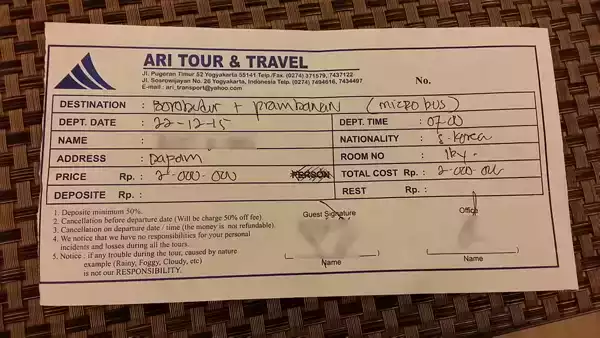 ARI TOUR & TRAVEL
Jl. Pugeran Timur 52 Yogyakarta 55141 Telp./Fax. (0274) 371579, 7437122
Jl. Sosrowijayan No. 26 Yogyakarta, Indonesia Telp. (0274) 7494616, 7434497
E-mail : ari_transport@yahoo.com
No.
DESTINATION : Borobudur + prambanan (micro bus)
DEPT. DATE : 22-12-15 DEPT. TIME : 07.00
NAME : NATIONALITY : S-Korea
ADDRESS : ROOM NO :
PRICE Rp. : 2.000.000 PERSON TOTAL COST Rp. : 2.000.000
DEPOSITE Rp. : REST Rp. :
1. Deposite minimum 50%.
2. Cancellation before departure date (Will be charge 50% off fee).
3. Cancellation on departure date / time (the money is not refundable).
4. We notice that we have no responsibilities for your personal
incidents and losses during all the tours.
5. Notice : if any trouble during the tour, caused by nature
example (Rainy, Foggy, Cloudy, etc)
is not our RESPONSIBILITY.
Guest Signature Office
Name Name